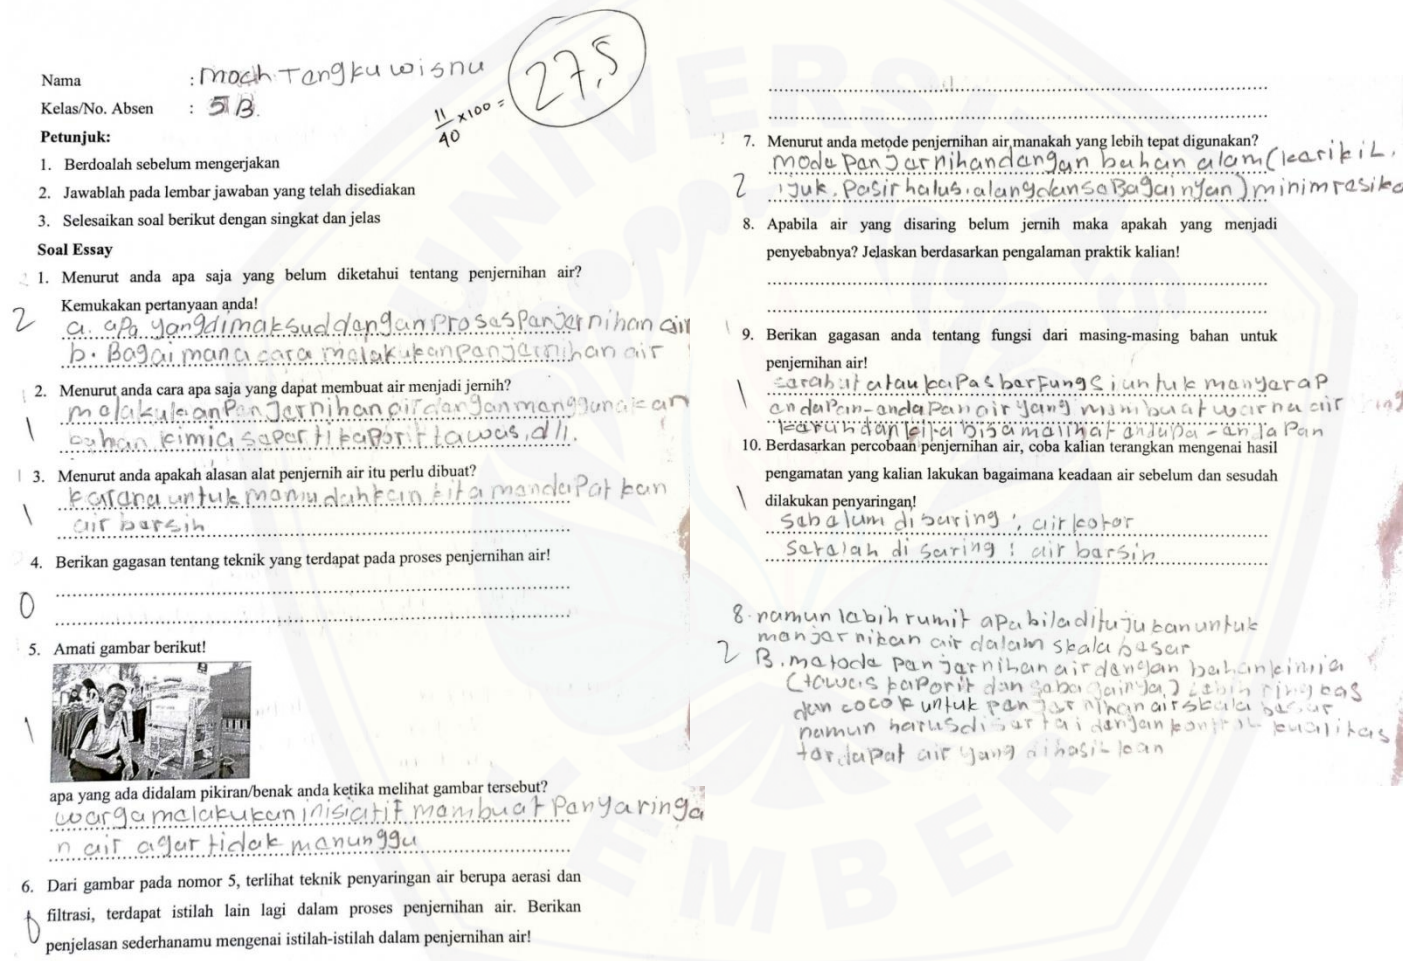 Nama : moch Tangku wisnu
Kelas/No. Absen : 5 B.
11/40 x100 = 27,5
Petunjuk:
1. Berdoalah sebelum mengerjakan
2. Jawablah pada lembar jawaban yang telah disediakan
3. Selesaikan soal berikut dengan singkat dan jelas
Soal Essay
1. Menurut anda apa saja yang belum diketahui tentang penjernihan air?
Kemukakan pertanyaan anda!
2
a. apa yang dimaksud dangan Prosas Panjarnihan air
b. Bagaimana cara malakukan panjarnihan air
2. Menurut anda cara apa saja yang dapat membuat air menjadi jernih?
1
malakukan Panjarnihan air dangan manggunakan
bahan kimia saparti kaporit tawas, dll.
3. Menurut anda apakah alasan alat penjernih air itu perlu dibuat?
1
karana untuk mamudahkan kita mandapatkan
air barsih
4. Berikan gagasan tentang teknik yang terdapat pada proses penjernihan air!
0
5. Amati gambar berikut!
1
apa yang ada didalam pikiran/benak anda ketika melihat gambar tersebut?
warga malakukan inisiatif mambuat Panyaringa
n air agar tidak manunggu
6. Dari gambar pada nomor 5, terlihat teknik penyaringan air berupa aerasi dan
filtrasi, terdapat istilah lain lagi dalam proses penjernihan air. Berikan
0
penjelasan sederhanamu mengenai istilah-istilah dalam penjernihan air!
7. Menurut anda metode penjernihan air manakah yang lebih tepat digunakan?
2
mode Panjarnihan dangan bahan alam (karikil,
ijuk. Pasir halus. alang dan sa Bagainyan) minim rasiko
8. Apabila air yang disaring belum jernih maka apakah yang menjadi
penyebabnya? Jelaskan berdasarkan pengalaman praktik kalian!
9. Berikan gagasan anda tentang fungsi dari masing-masing bahan untuk
penjernihan air!
1
sarabut atau kapas barfungsi untuk manyarap
andapan-andapan air yang mambuat warna air
karuh dan kita bisa malihat andapa-andapan
10. Berdasarkan percobaan penjernihan air, coba kalian terangkan mengenai hasil
pengamatan yang kalian lakukan bagaimana keadaan air sebelum dan sesudah
1
dilakukan penyaringan!
sabalum di saring : air kotor
satalah di saring : air barsih
8. namun labih rumit apabila ditujukan untuk
manjarnikan air dalam skala basar
2
B. matoda panjarnihan air dangan bahan kimia
(tawas kaporit dan sabagainya) labih ringkas
dan cocok untuk panjarnihan air skala basar
namun harus disartai dangan kontrol kualitas
tardapat air yang dihasilkan
UNIVERSITAS
JEMBER